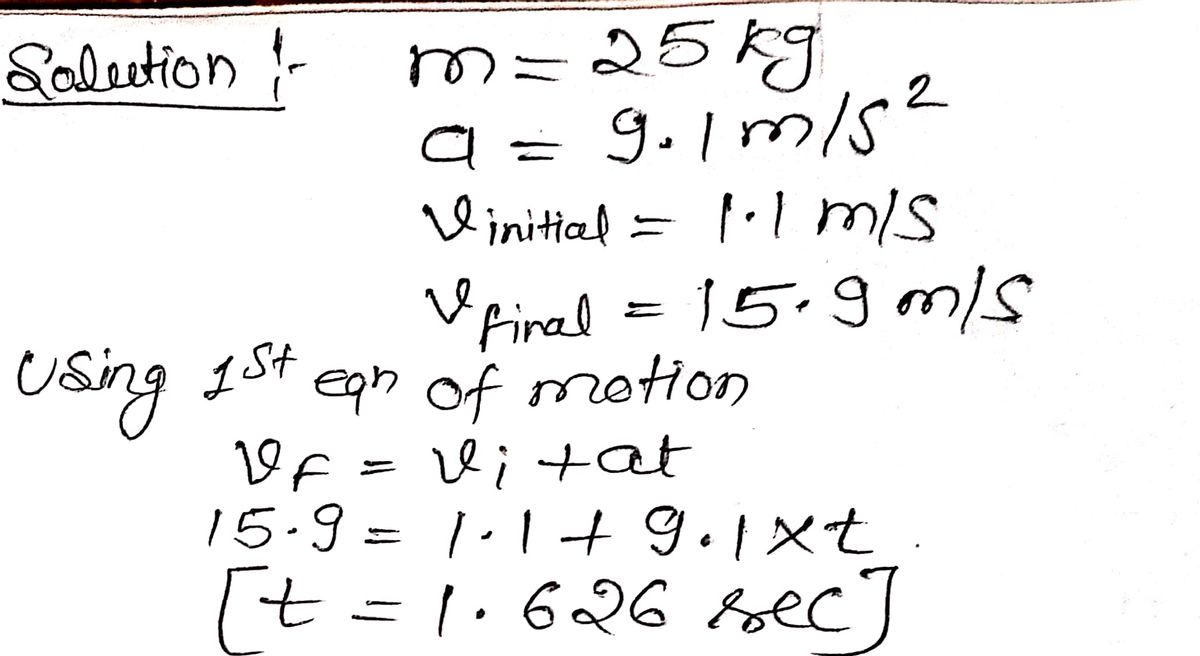 Solution :- m = 25 kg
a = 9.1 m/s²
v initial = 1.1 m/s
v final = 15.9 m/s
Using 1st eqn of motion
vf = vi + at
15.9 = 1.1 + 9.1 × t
[t = 1.626 sec]